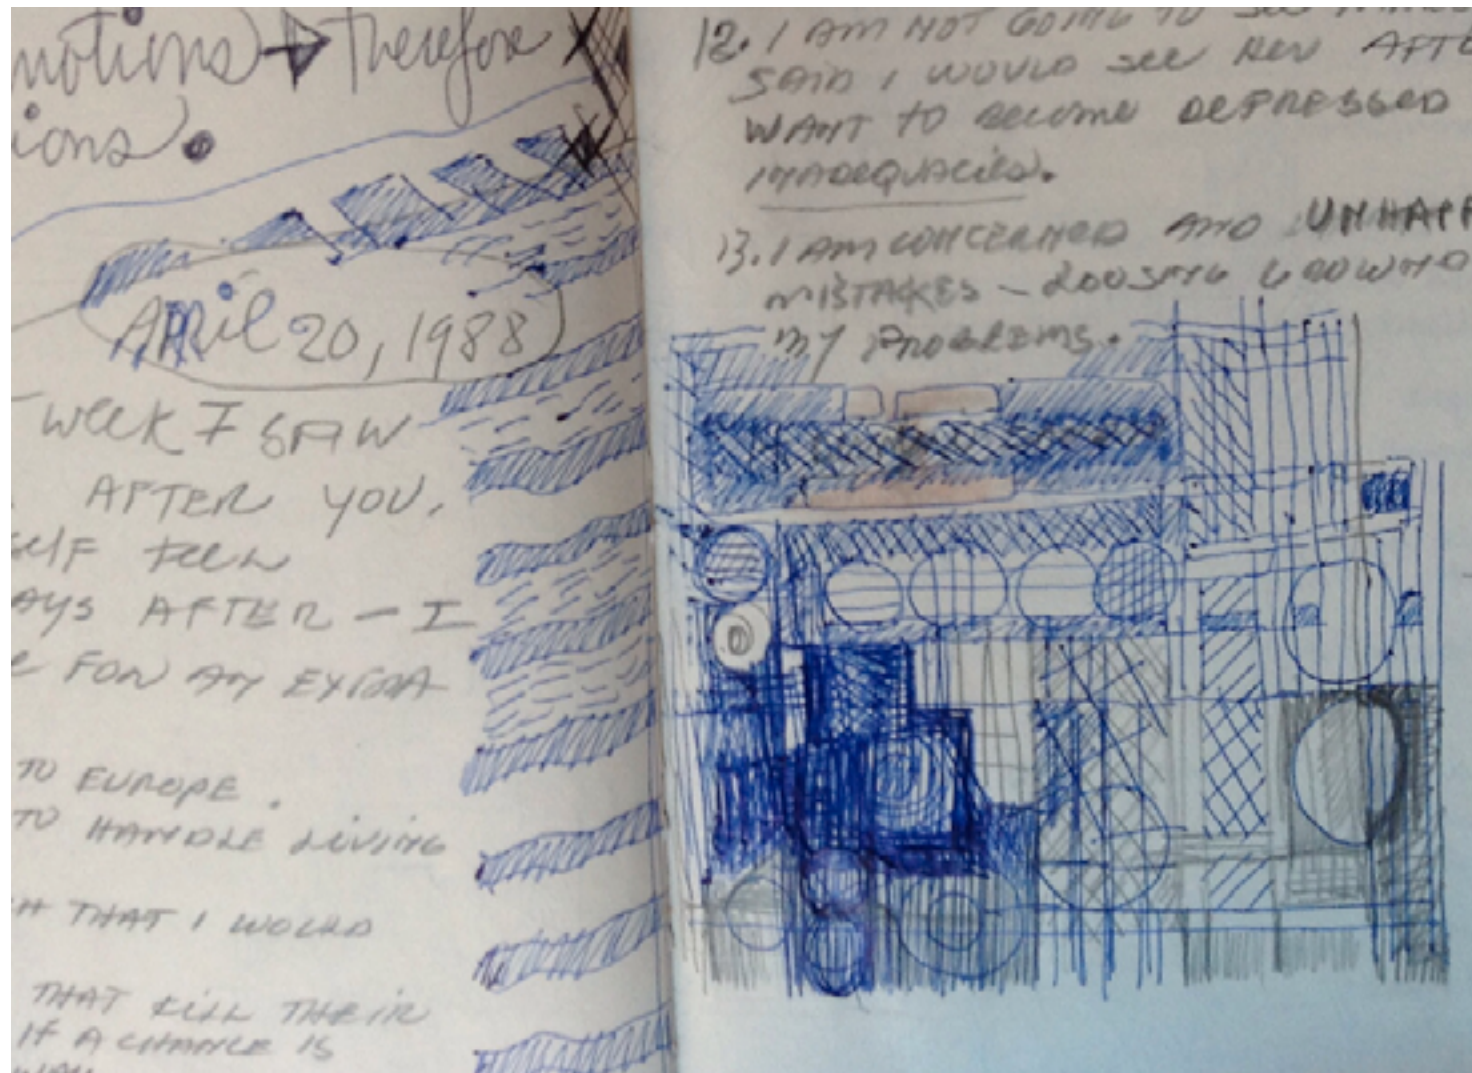 motions → Therefore
ions.
APRIL 20, 1988
WEEK I SAW
AFTER YOU.
SELF FEEL
AYS AFTER - I
FOR AN EXTRA
TO EUROPE.
TO HANDLE LIVING
H THAT I WOULD
THAT KILL THEIR
IF A CHANCE IS
WAY
12. I AM NOT GOING TO SEE
SAID I WOULD SEE HER AFTE
WANT TO BECOME DEPRESSED
INADEQUACIES.
13. I AM CONCERNED AND UNHAPP
MISTAKES - LOUSING
MY PROBLEMS.